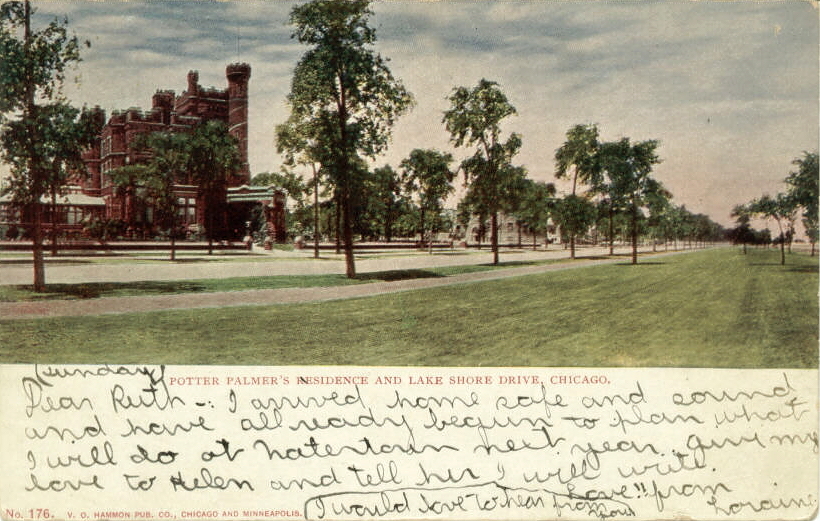 (Sunday)
POTTER PALMER'S RESIDENCE AND LAKE SHORE DRIVE, CHICAGO.
Dear Ruth -: I arrived home safe and sound
and have allready begun to plan what
I will do at Watertown next year. give my
love to Helen and tell her I will write.
Love!! from
Loraine
I would love to hear from
you
No. 176. V. O. HAMMON PUB. CO., CHICAGO AND MINNEAPOLIS.